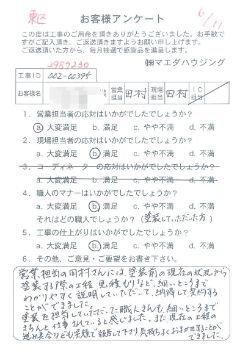 東区
6/11
お客様アンケート
この度は工事のご用命を頂きありがとうございました。お手数で
すがご記入頂き、ご返送頂きますようお願い申し上げます。
ご返送頂いた方から、毎月抽選で感謝品を進呈します。
㈱マエダハウジング
工事ID 002-
お客様名 営業担当 田村 現場担当 田村
1. 営業担当者の応対はいかがでしたでしょうか?
a.大変満足 b.満足 c.やや不満 d.不満
2. 現場担当者の応対はいかがでしたでしょうか?
a.大変満足 b.満足 c.やや不満 d.不満
3. コーディネーターの応対はいかがでしたでしょうか?
a.大変満足 b.満足 c.やや不満 d.不満
4. 職人のマナーはいかがでしたでしょうか?
a.大変満足 b.満足 c.やや不満 d.不満
それはどの職人でしょうか? (塗装していただいた方)
5. 工事の仕上がりはいかがでしたでしょうか?
a.大変満足 b.満足 c.やや不満 d.不満
6. その他、ご意見・ご要望をお書き下さい。
営業担当の田村さんには、塗装前の現在の状況から
塗装する際の工程、見積もりなど、細いところまで
わかりやすく説明していただいて、納得して契約する
ことができました。
塗装を担当していただいた職人さんも、細いところまで
きちんと仕事されていると感じました。また、現在の工程の